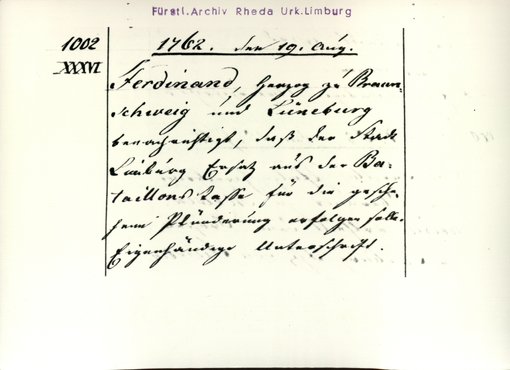 Fürstl. Archiv Rheda Urk. Limburg
1002
XXXVI
1762. den 19. Aug.
Ferdinand, Herzog zu Braun-
schweig und Lüneburg
benachrichtigt, daß der Stadt
Limburg Ersatz aus der Ba-
taillons Casse für die gesche-
hene Plünderung erfolgen solle.
Eigenhändige Unterschrift.